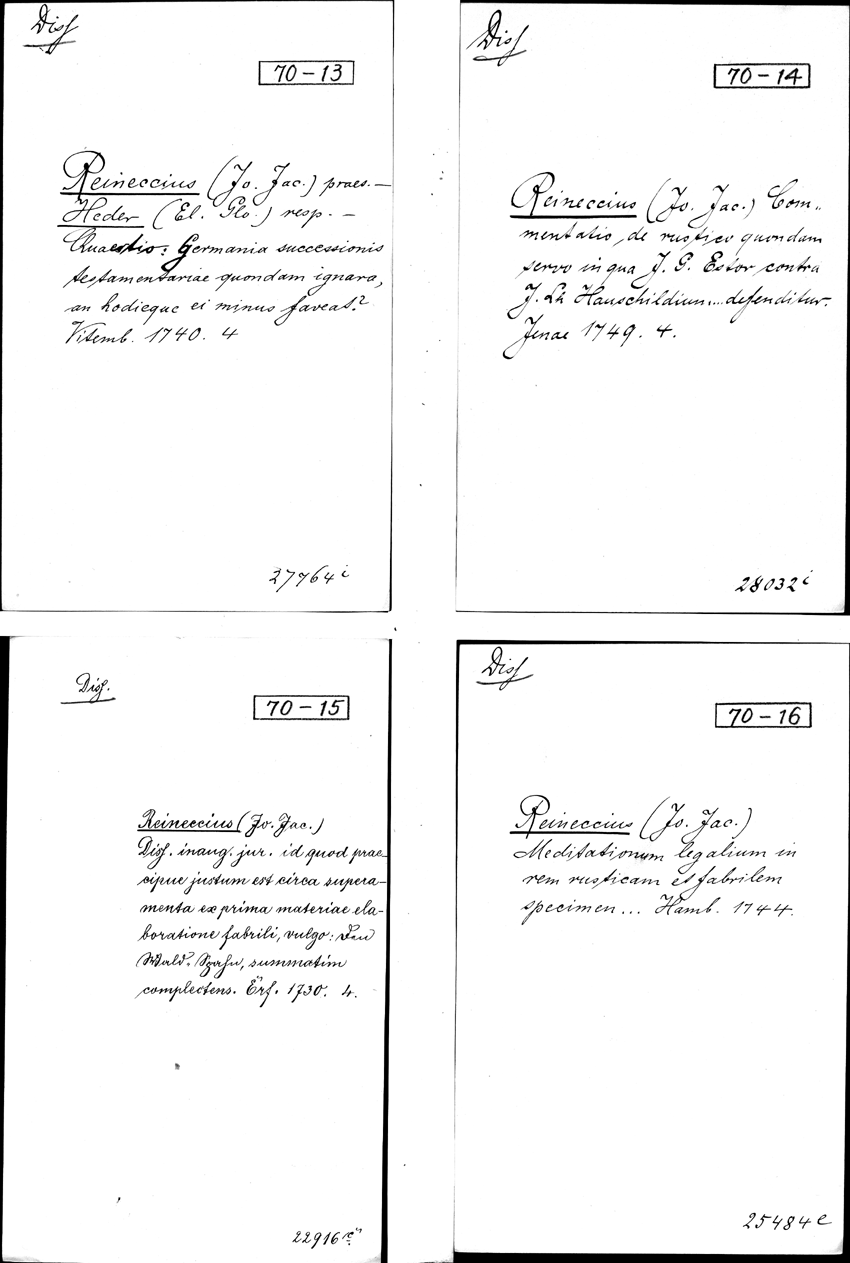 Diss
70-13
Reineccius (Jo. Jac.) praes. —
Heder (El. Glo.) resp. —
Quaestio: Germania successionis
testamentariae quondam ignara,
an hodieque ei minus faveat?
Vitemb. 1740. 4
27764 i
Diss
70-14
Reineccius (Jo. Jac.) Com-
mentatio de rustico quondam
servo in qua J. G. Estor contra
J. L. Hauschildium .... defenditur.
Jenae 1749. 4.
28032 i
Diss.
70-15
Reineccius (Jo. Jac.)
Diss. inaug. jur. id quod prae-
cipue justum est circa supera-
menta ex prima materiae ela-
boratione fabrili, vulgo: Den
Wald-Spahn, summatim
complectens. Erf. 1730. 4.
22916
Diss
70-16
Reineccius (Jo. Jac.)
Meditationum legalium in
rem rusticam et fabrilem
specimen ... Hamb. 1744.
25484 e